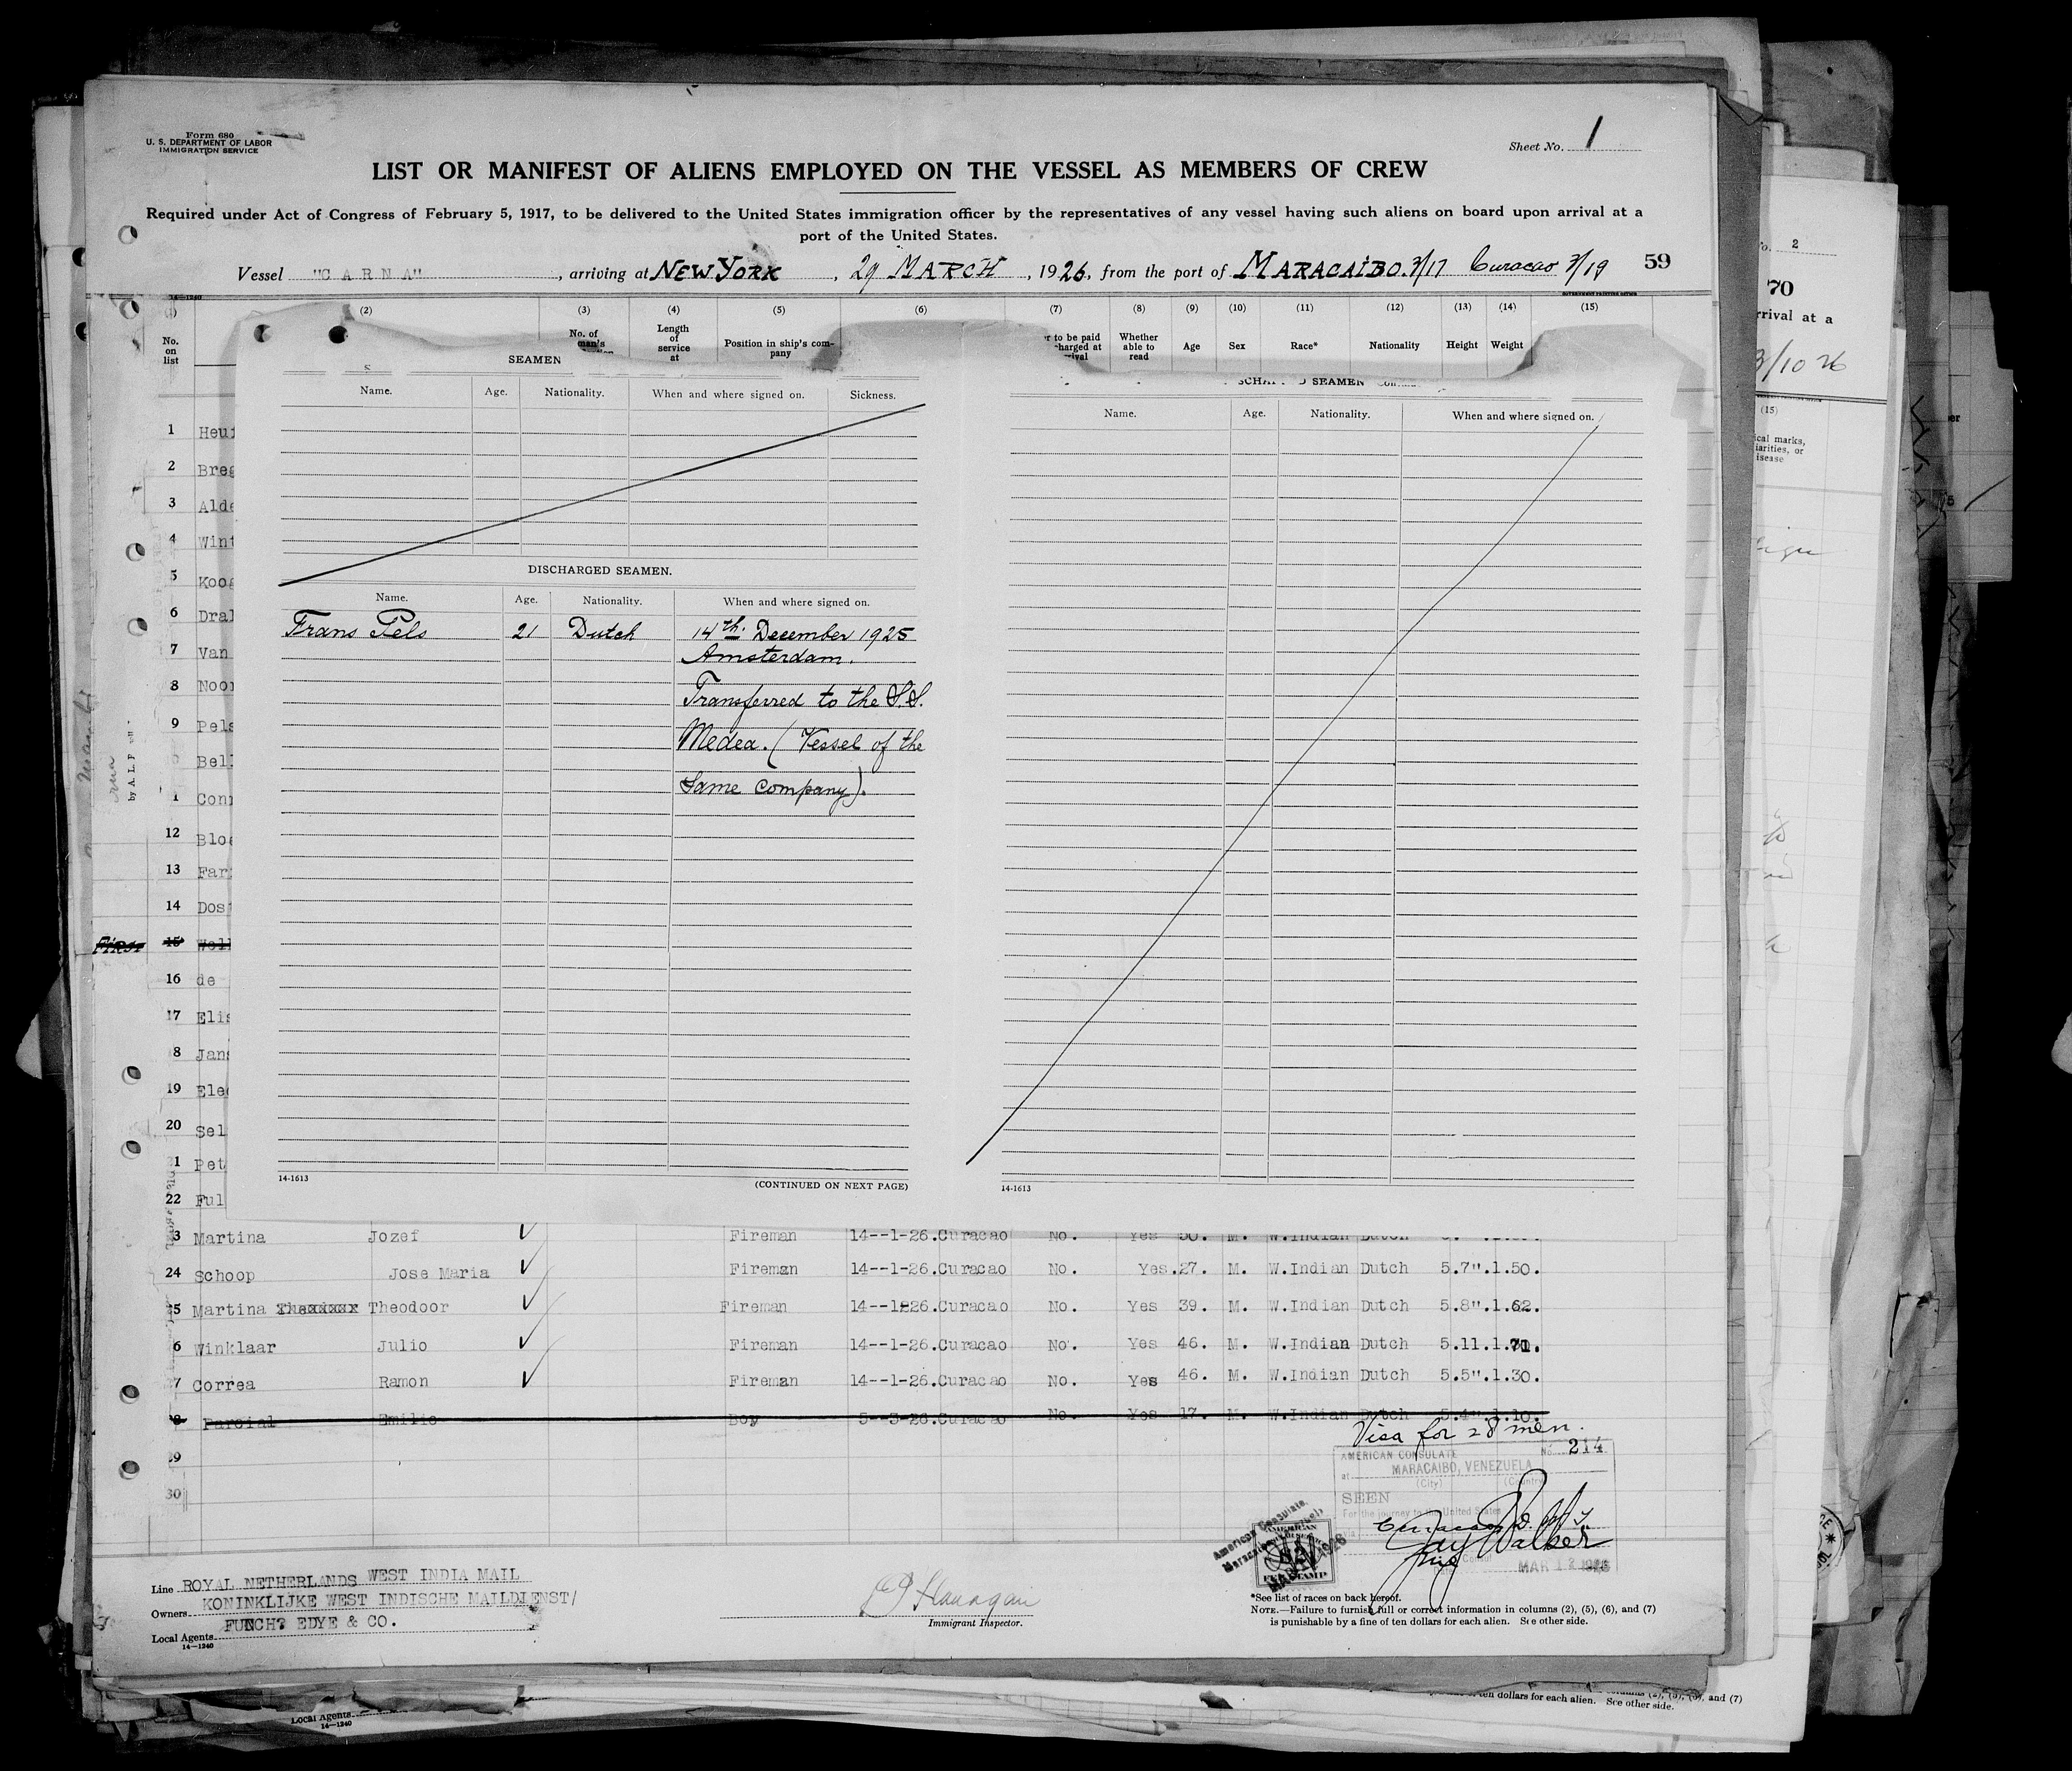 Form 680
U. S. DEPARTMENT OF LABOR
IMMIGRATION SERVICE
Sheet No. 1
LIST OR MANIFEST OF ALIENS EMPLOYED ON THE VESSEL AS MEMBERS OF CREW
Required under Act of Congress of February 5, 1917, to be delivered to the United States immigration officer by the representatives of any vessel having such aliens on board upon arrival at a
port of the United States.
Vessel "CARNA", arriving at NEW YORK, 29 MARCH, 1926, from the port of MARACAIBO. 3/17 Curacao 3/19 59
14-1240
(2) (3) (4) (5) (6) (7) (8) (9) (10) (11) (12) (13) (14) (15)
No. on list
No. of
Length of service at
Position in ship's company
to be paid
Whether able to read
Age Sex Race* Nationality Height Weight
SEAMEN
Name. Age. Nationality. When and where signed on. Sickness.
DISCHARGED SEAMEN.
Name. Age. Nationality. When and where signed on.
Frans Pels 21 Dutch 14th. December 1925
Amsterdam.
Transferred to the S.S.
Medea. (Vessel of the
Same Company).
14-1613
(CONTINUED ON NEXT PAGE)
SEAMEN
Name. Age. Nationality. When and where signed on.
14-1613
1 Heu
2 Bre
3 Alde
4 Wint
5 Koo
6 Dral
7 Van
8 Noor
9 Pels
Bell
1 Con
12 Blo
13 Far
14 Dos
First 15 Well
16 de
17 Elis
8 Jans
19 Ele
20 Sel
1 Pet
22 Ful
3 Martina Jozef Fireman 14--1-26.Curacao No. Yes 50. M. W.Indian Dutch
24 Schoop Jose Maria Fireman 14--1-26.Curacao No. Yes.27. M. W.Indian Dutch 5.7".1.50.
5 Martina Theodoor Fireman 14--1-26.Curacao No. Yes 39. M. W.Indian Dutch 5.8".1.62.
6 Winklaar Julio Fireman 14--1-26.Curacao No. Yes 46. M. W.Indian Dutch 5.11.1.71.
7 Correa Ramon Fireman 14--1-26.Curacao No. Yes 46. M. W.Indian Dutch 5.5".1.30.
8 Parcial Emilio Boy 5--3-26.Curacao No. Yes 17. M. W.Indian Dutch 5.4".1.10.
29
30
Visa for 28 men.
AMERICAN CONSULATE No. 214
at MARACAIBO, VENEZUELA
(City) (Country)
SEEN
For the journey to the United States
Jay Walker
MAR 12 1926
American Consulate,
AMERICAN
FEE STAMP
Line ROYAL NETHERLANDS WEST INDIA MAIL
Owners KONINKLIJKE WEST INDISCHE MAILDIENST/
Local Agents FUNCH? EDYE & CO.
14-1240
Flanagan
Immigrant Inspector.
*See list of races on back hereof.
NOTE.—Failure to furnish full or correct information in columns (2), (5), (6), and (7)
is punishable by a fine of ten dollars for each alien. See other side.
by A. L. F
2
70
rrival at a
3/10 26
(15)
ical marks,
iarities, or
isease
ten dollars for each alien. See other side.
and (7)
Local Agents
14-1240